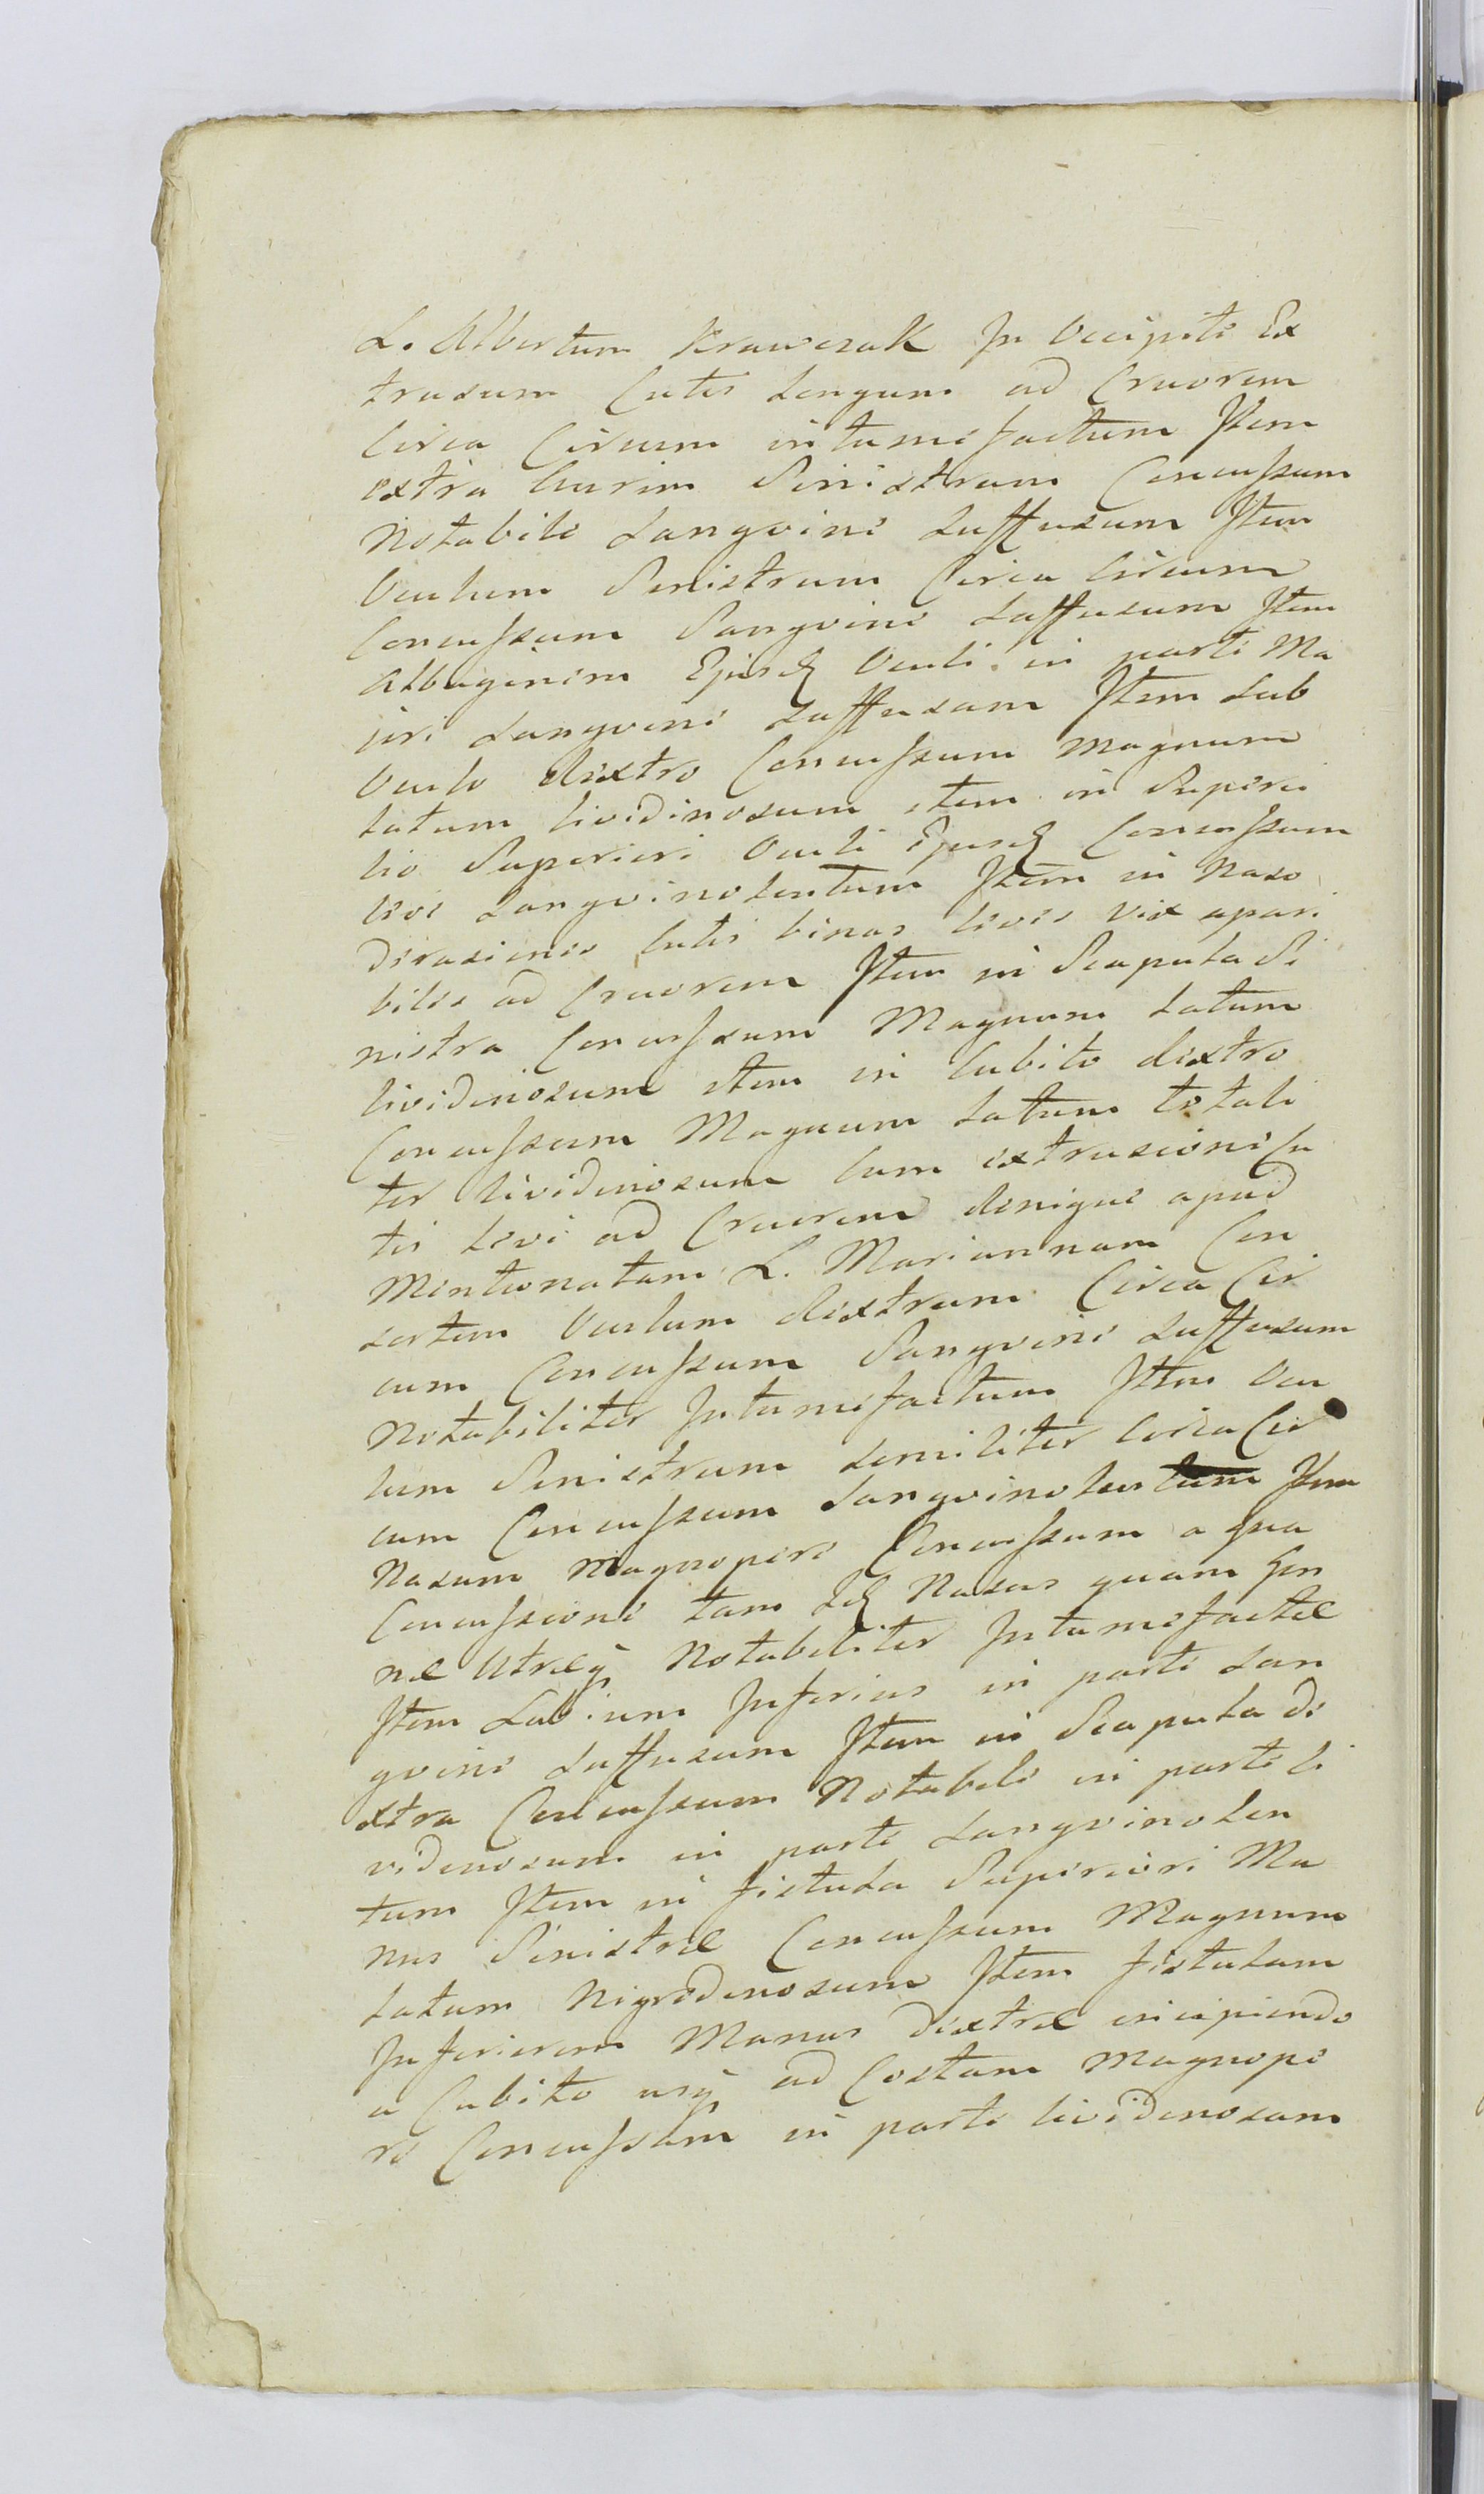 L. Albertum Krawczak In Occipite Ex
trusum Cutis Longum ad Cruorem
Circa Circum intumefactum Item
extra Aurim Sinistram Concussum
Notabile Sangvine Suffusum Item
Oculum Sinistrum Circa Circum
Concussum Sangvine Suffusum Item
Albuginem Ejusd Oculi in parte Ma
iori Sangvine Suffusam Item Sub
Oculo dextro Concussum magnum
Latum lividinosum item in Superci
lio Superiori Oculi Ejusd Concussum
leve Sangvinolentum Item in Naso
Derasiones Cutis binas leves vix apari
biles ad Cruorem Item in Scapula Si
nistra Concussum Magnum Latum
lividinosum item in Cubito dextro
Concussum Magnum Latum totali
ter lividinosum Cum extrusione Cu
tis Levi ad Cruorem denique apud
Mentionatam L. Mariannam Con
sortem Oculum dextrum Circa Cir
cum Concussum Sangvine Suffusum
Notabiliter Intumefactum Item Ocu
lum Sinistrum Similiter Circa Cir
cum Concussum Sangvinolentum Item
Nasum Magnopere Concussum a qua
Concussione tam Sd Nasus quam Gen
næ Utræq Notabiliter Intumefactæ
Item Labium Inferius in parte San
gvine Suffusum Item in Scapula de
xtra Concussum Notabile in parte li
vidinosum in parte Sangvinolen
tum Item in fistula Superiori Ma
nus Sinistræ Concussum Magnum
Latum Nigredinosum Item fistulam
Inferiorem Manus Dextræ incipiendo
a Cubito usq ad Costam Magnope
re Concussam in parte lividinosam